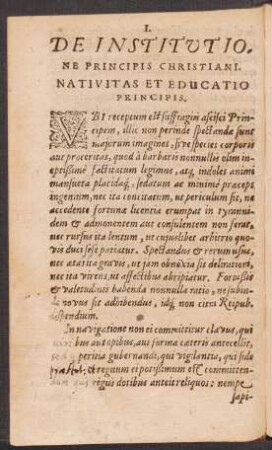 I.
DE INSTITVTIO.
NE PRINCIPIS CHRISTIANI.
NATIVITAS ET EDUCATIO
PRINCIPIS.
VBI receptum est suffragiis ascisci Prin-
cipem, illic non perinde spectandæ sunt
majorum imagines, sive species corporis
aut proceritas, quod à barbaris nonnullis olim in-
eptissimè factitatum legimus, atq; indoles animi
mansueta placidaq;, sedatum ac minimè præceps
ingenium, nec ita concitatum, ut periculum sit, ne
accedente fortunæ licentia erumpat in tyranni-
dem & admonentem aut consulentem non ferat,
nec rursus ita lentum, ut cujuslibet arbitrio quo-
vis duci sese patiatur. Spectandus & rerum usus,
nec ætas ita gravis, ut jam obnoxia sit delirationi,
nec ita virens, ut affectibus abripiatur. Fortassis
& valetudinis habenda nonnulla ratio, ne subin-
de novus sit adhibendus, idq; non citra Reipub.
dispendium.
In navigatione non ei committitur clavus, qui
bus aut opibus, aut forma cæteris antecellit,
sed peritia gubernandi, qui vigilantia, qui fide
præstat: & regnum ei potissimum est committen-
dum, qui regiis dotibus anteit reliquos: nempe
sapi-